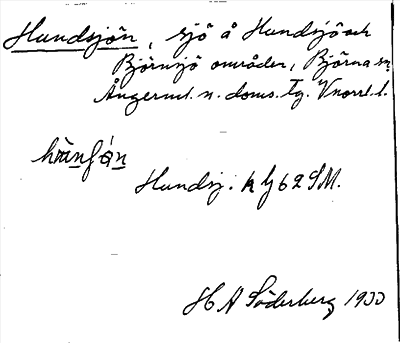 Hundsjön, sjö å Hundsjö och
Björnsjö områden, Björna sn
Ångerml. n. doms. tg. Vnorrl. l.
Hundsj. k bj 62 SM.
H A Söderberg 1933